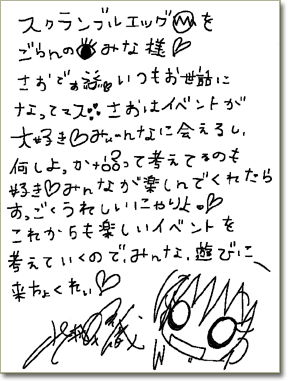 スクランブルエッグを
ごらんのみな様♡
さおでぁいつもお世話に
なってマスさおはイベントが
大好き♡みぃーんなに会えるし、
何しよっかって考えてるのも
好き♡みんなが楽しんでくれたら
すっごくうれしいにゃりよ
これからも楽しいイベントを
考えていくので、みんな、遊びに
来ちょくれぃ♡